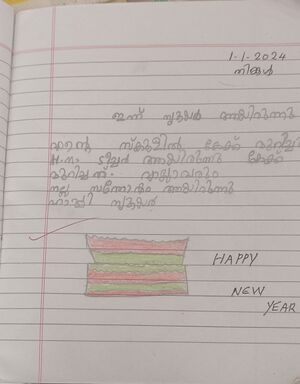 1-1-2024
തിങ്കൾ
ഇന്ന് ന്യൂഇയർ ആയിരുന്നു
എന്റെ സ്കൂളിൽ കേക്ക് മുറിച്ചു
H.M. ടീച്ചർ ആയിരുന്നു കേക്ക്
മുറിച്ചത്. എല്ലാവരും
നല്ല സന്തോഷം ആയിരുന്നു
ഹാപ്പി ന്യൂഇയർ
HAPPY
NEW
YEAR